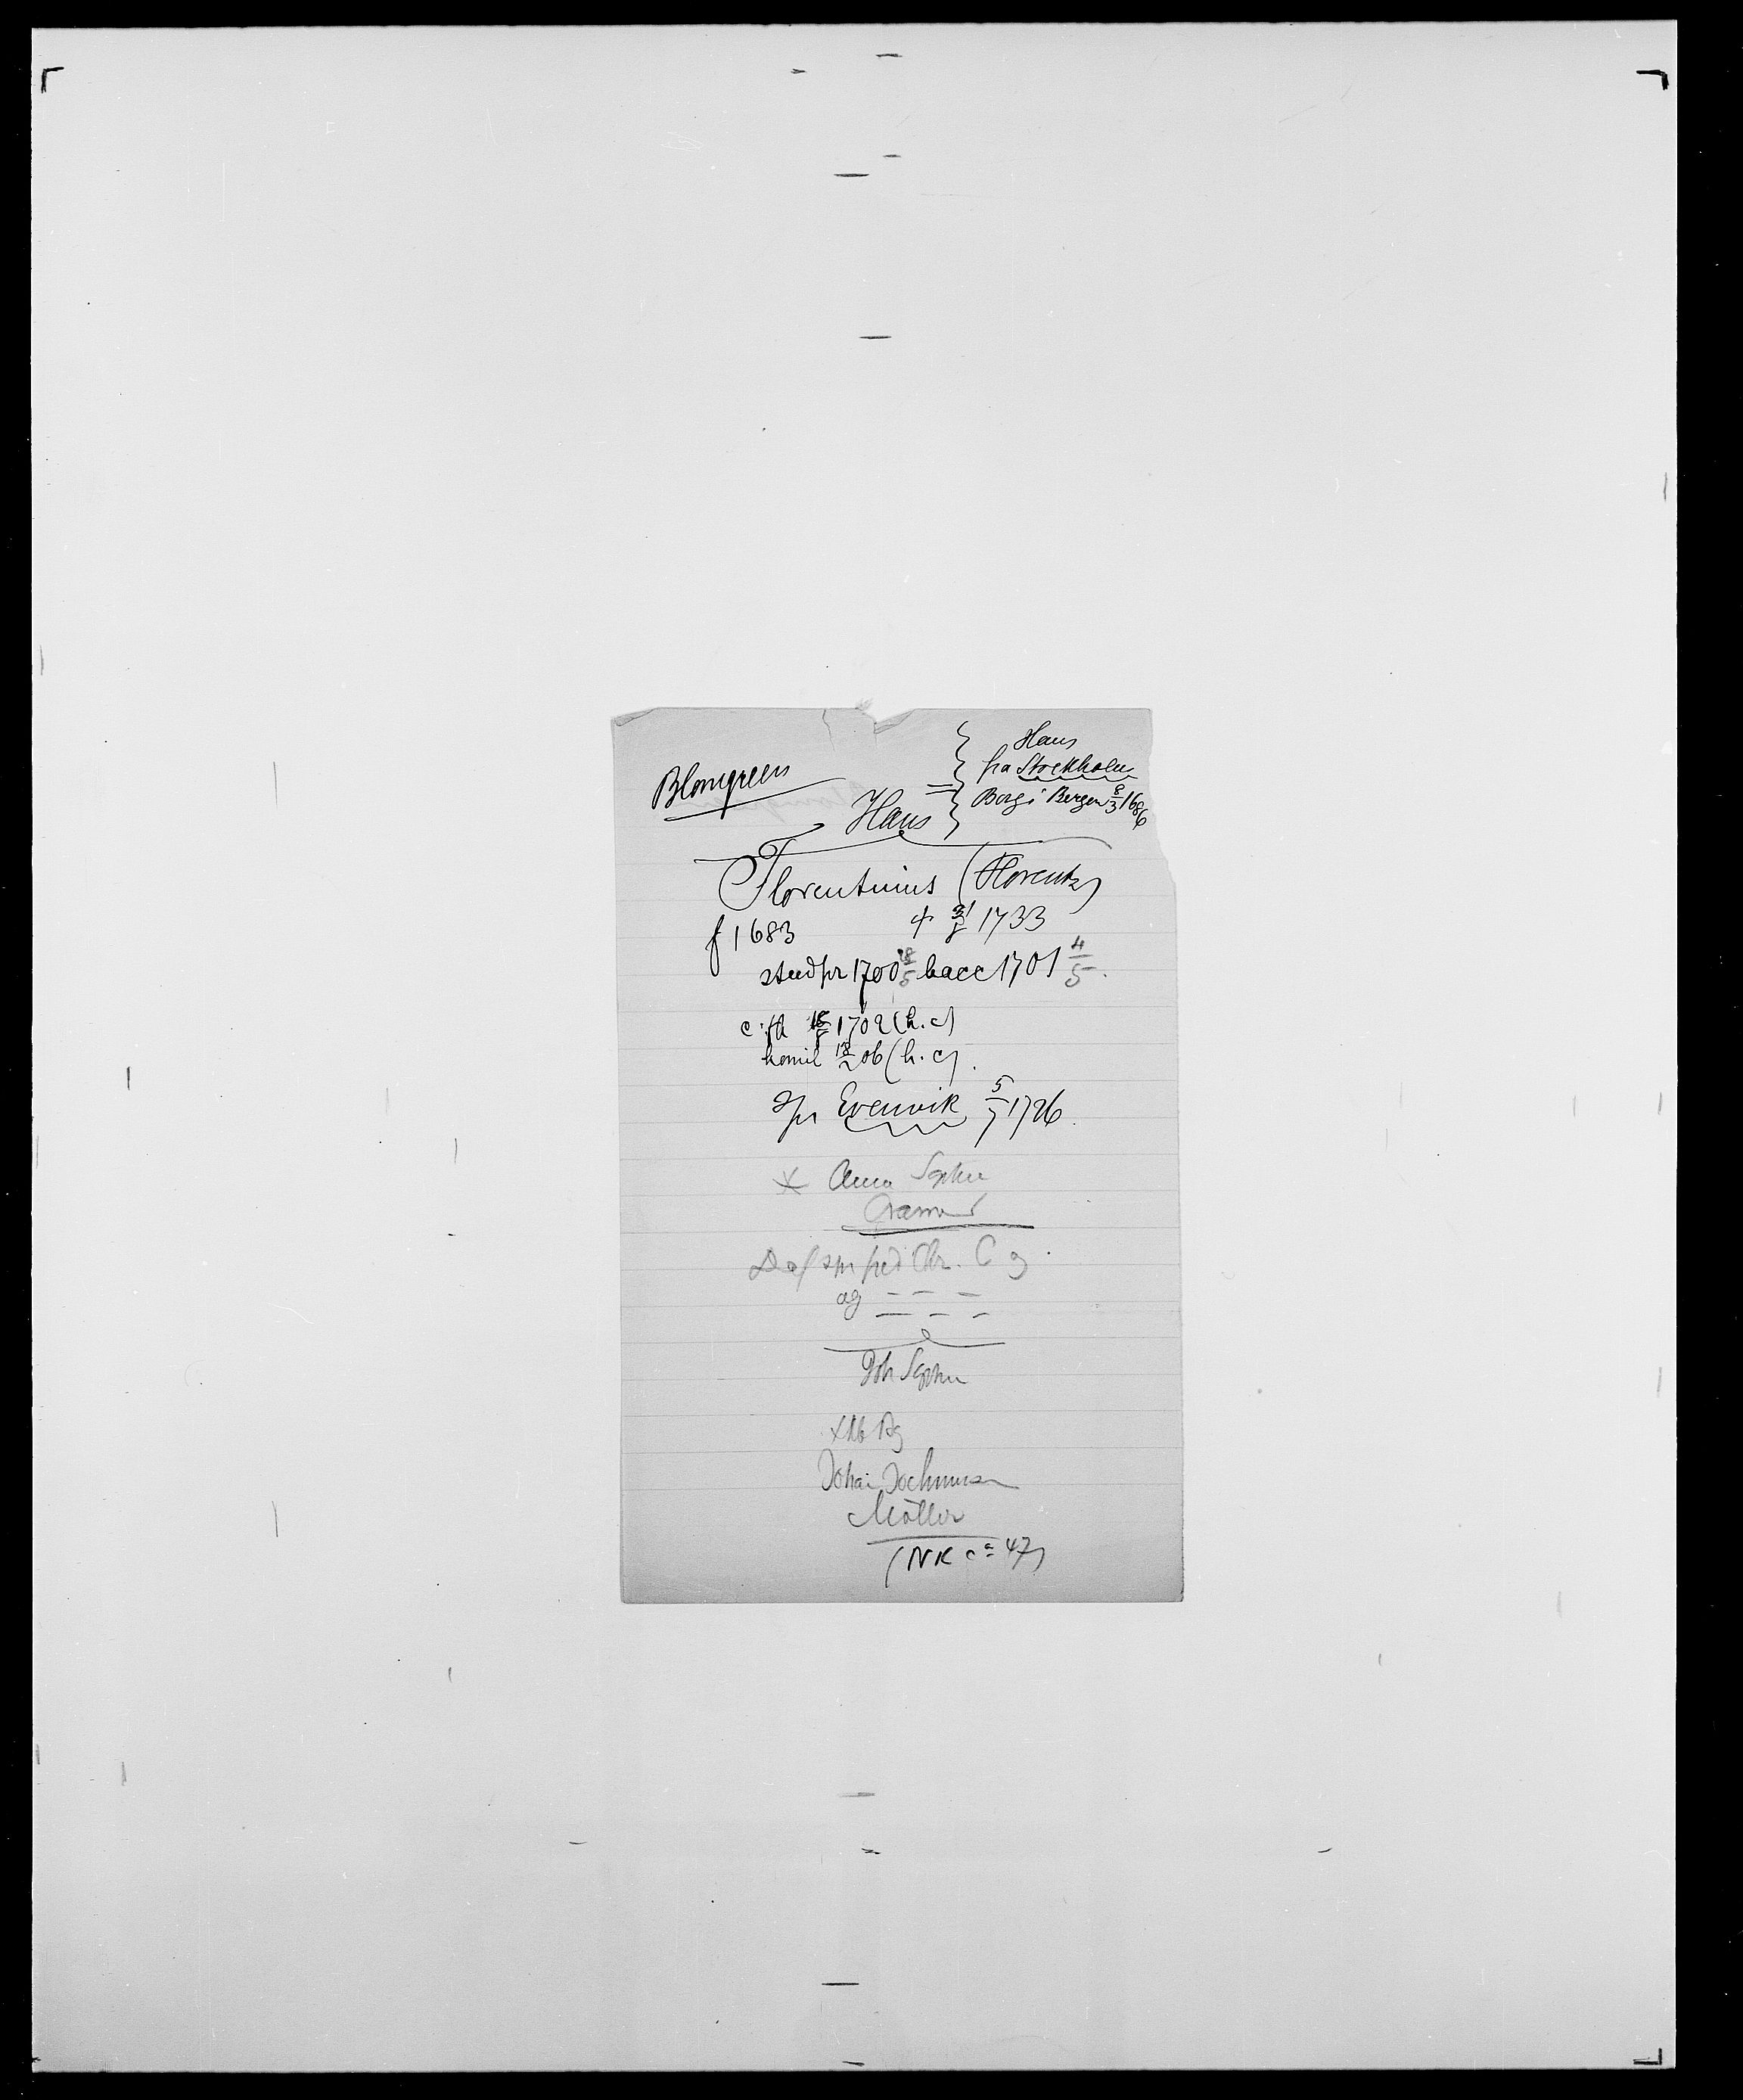 Blomgreen
Hans
fra Stockholm
Borg i Bergen 8/3 1686
= Hans
Florentinius (Florentz)
f 1683 † 31/5 1733
stud fr 1700 18/5 bacc 1701 4/5.
c. th 1702 (h. c)
homil 18/2 06 (h. c).
spr Evenvik 5/7 1726.
Anna Sophie
Cramer
D af spr Chr. C og
og — — —
— — —
Joh Sophie
Johan Jochumsen
Möller
(NK ca 47)